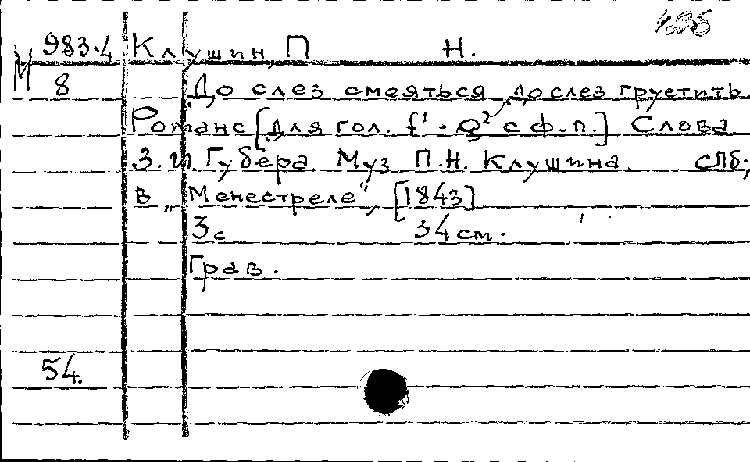 М 983.4 Клушин, П Н.
8 До слез смеяться, до слез грустить
Романс [для гол. f¹ - a² с ф.-п.] Слова
Э. И. Губера Муз П. Н. Клушина. СПб,
в „Менестреле", [1843]
3с 34 см.
Грав.
54.